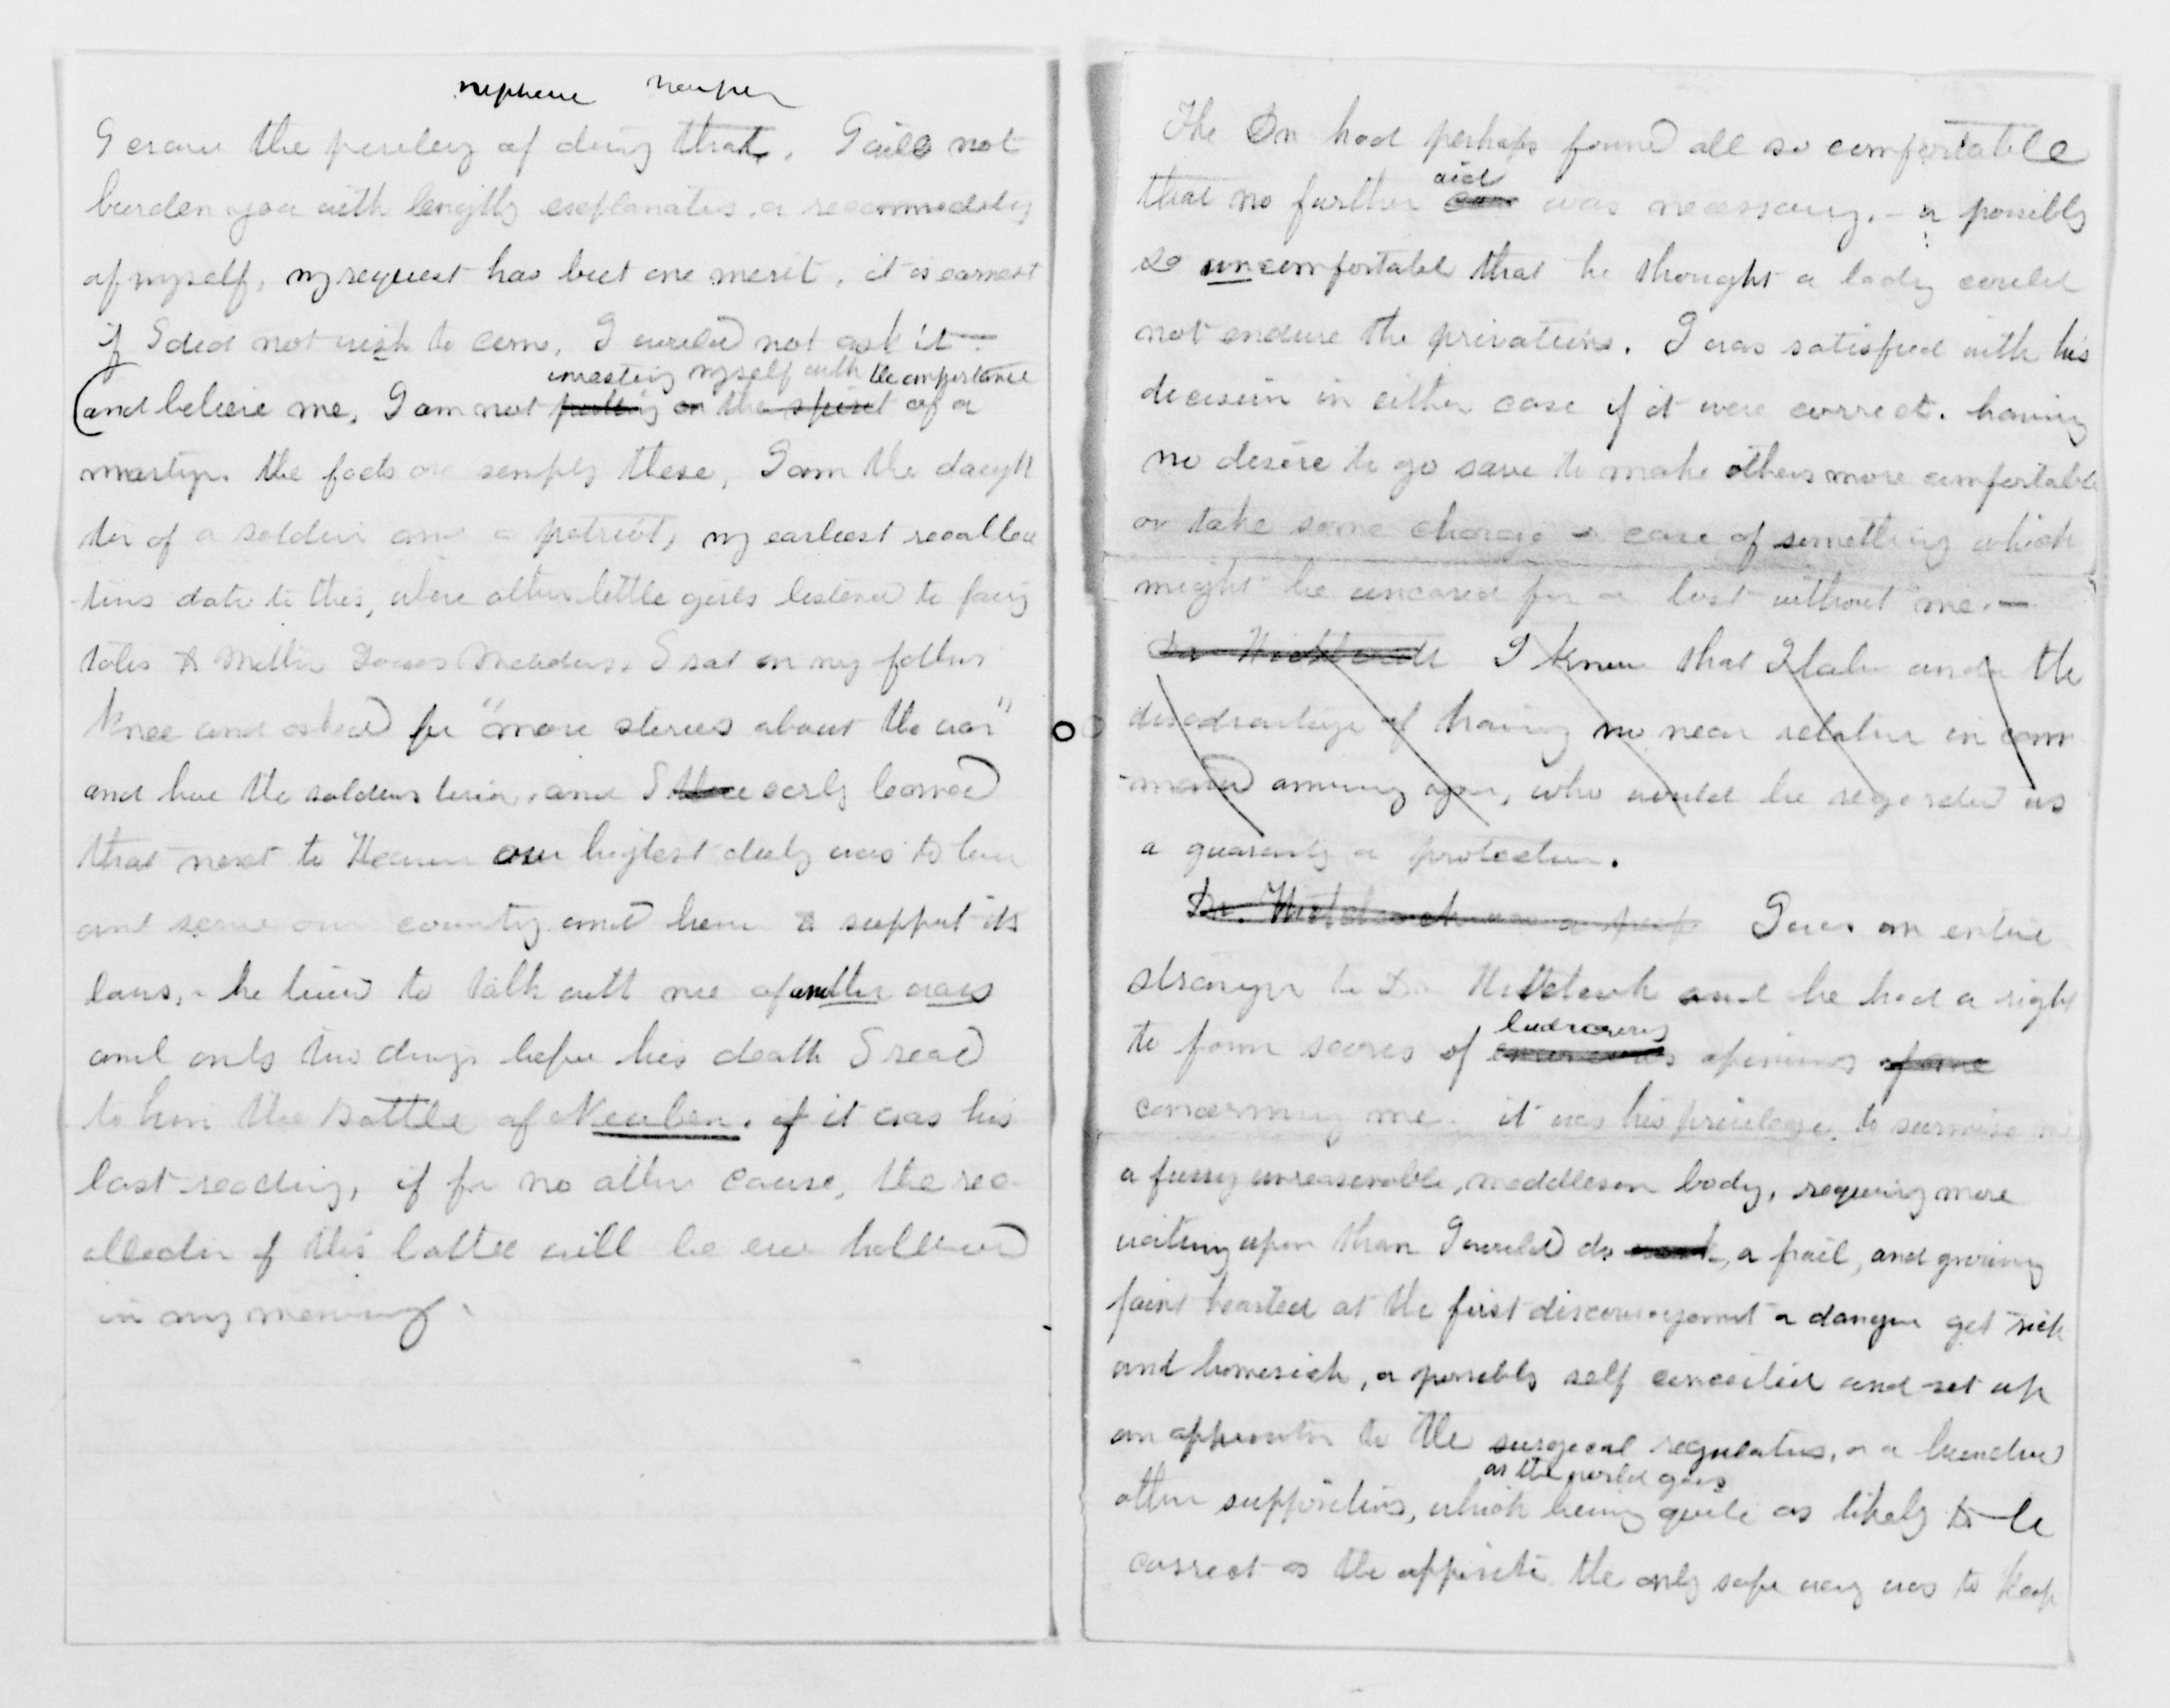 I crave the privilege of doing that. I will not
burden you with lengthy explanations, or recommendatory
of myself, my request has but one merit, it is earnest
if I did not wish to come, I would not ask it —
investing myself with the importance
(and believe me, I am not putting on the spirit of a
martyr. the facts are simply these, I am the daugh
ter of a soldier and a patriot, my earliest recollec
-tions date to this, where other little girls listened to fairy
tales & Mother Gooses Melodies, I sat on my fathers
knee and asked for "more stories about the war"
and how the soldiers lived, and I early learned
that next to Heaven our highest duty was to love
and serve our country and honor & support its
laws, - he lived to talk with me of another war
and only two days before his death I read
to him the Battle of Newbern. if it was his
last reading, if for no other cause, the rec
ollection of this battle will be ever hallowed
in my memory.
The Dr had perhaps found all so comfortable
aid
that no further was necessary. - or possibly
so uncomfortable that he thought a lady could
not endure the privations. I was satisfied with his
decision in either case if it were correct. having
no desire to go save to make others more comfortable
or take some charge or care of something which
might be uncared for or lost without me. —
Dr Hitchcock I know that I labor under the
disadvantage of having no near relative in com
-mand among you, who would be regarded as
a guaranty or protection.
Dr. Hitchcock was a I was an entire
stranger to Dr Hitchcock and he had a right
ludicrous
to form scores of opinions of me
concerning me. it was his privilege, to surmise me
a fussy unreasonable, meddlesom body, requiring more
waiting upon than I would do work, or frail, and growing
faint hearted at the first discouragement or danger get sick
and homesick, or possibly self conceited and set up
an opposition to the surgical regulations, or a hundred
as the world goes
other suppositions, which being quite as likely to be
correct as the opposite the only safe way was to keep